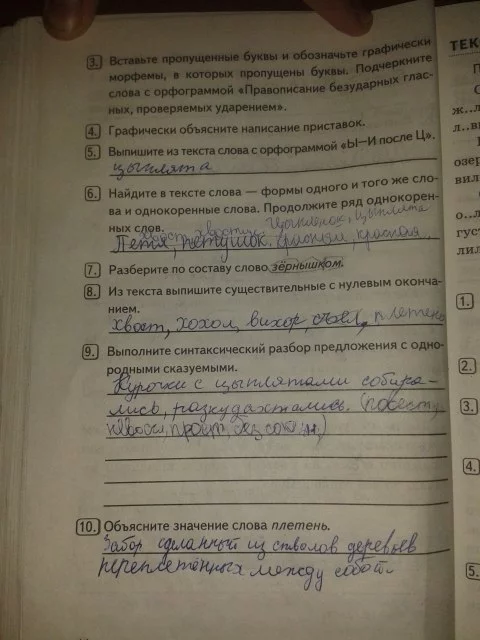 3. Вставьте пропущенные буквы и обозначьте графически
морфемы, в которых пропущены буквы. Подчеркните
слова с орфограммой «Правописание безударных глас-
ных, проверяемых ударением».
4. Графически объясните написание приставок.
5. Выпишите из текста слова с орфограммой «Ы—И после Ц».
цыплята
6. Найдите в тексте слова — формы одного и того же сло-
ва и однокоренные слова. Продолжите ряд однокорен-
ных слов.
цыпленок, цыплята
Петя, петушок. красная
7. Разберите по составу слово зёрнышком.
8. Из текста выпишите существительные с нулевым оконча-
нием.
хвост, хохол, вихор, съел, плетень
9. Выполните синтаксический разбор предложения с одно-
родными сказуемыми.
Курочки с цыплятами собира-
лись, раскудахтались. (повеств
невоскл, прост,
10. Объясните значение слова плетень.
Забор сделанный из стволов деревьев
переплетённых между собой.
ТЕК
П
С
ж..л
л..в
озер
вил
о..л
гус
лил
1.
2.
3.
4.
5.